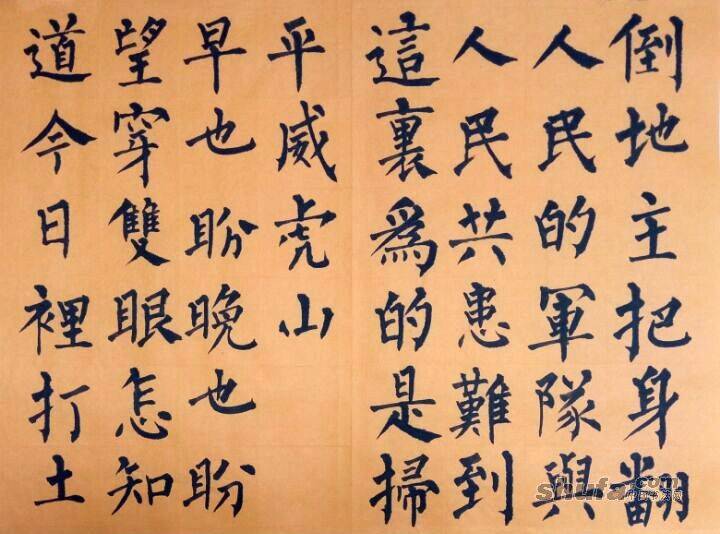 倒地主把身翻
人民的軍隊與
人民共患難到
這裏爲的是掃
平威虎山
早也盼晚也盼
望穿雙眼怎知
道今日裡打土